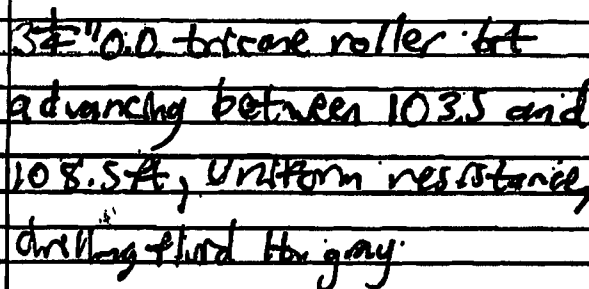 3 3/4" O.D. tricone roller bit
advancing between 103.5 and
108.5ft, Uniform resistance,
drilling fluid gray.